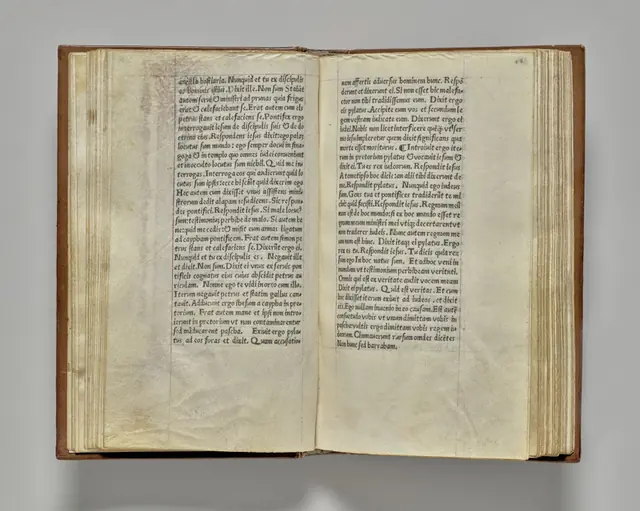 ancilla hostiaria. Nunquid et tu ex discipulis
es hominis istius. Dixit ille. Non sum Stabāt
autem servi & ministri ad prunas quia frigus
erat & calefaciebant se. Erat autem cum eis
petrus stans et calefaciens se. Pontifex ergo
interrogavit Iesum de discipulis suis & de do
ctrina eius. Respondens iesus dixit: ego palaz
locutus sum mundo: ego semper docui in sina
goga & in templo quo omnes iudei conueniunt
et in occulto locutus sum nichil. Quid me in
terrogas. Interroga eos qui audierunt quid lo
cutus sum ipsis: ecce hi sciūt quid dixerim ego
Hec autem cum dixisset vnus assistens mini
strorum dedit alapam iesu dicens. Sic respon
des pontifici. Respondit iesus. Si male locut9
sum: testimonium perhibe de malo. Si autem be
ne: quid me cedis: & misit eum annas ligatum
ad caypham pontificem. Erat autem simon pe
trus stans et calefaciens se. Dixerūt ergo ei.
Nunquid et tu ex discipulis es. Negauit ille
et dixit. Non sum. Dixit ei vnus ex seruis pon
tificis cognatus eius cuius abscidit petrus au
riculam. Nonne ego te vidi in orto cum illo.
Iterum negauit petrus et statim gallus can
tauit. Adducunt ergo ihesum a caypha in pre
torium. Erat autem mane et ipsi non intro
ierunt in pretorium vt non contaminarentur
sed māducarent pascha. Exiuit ergo pyla
tus ad eos foras et dixit. Quam accusatio
nem affertis aduersus hominem hunc. Respō
derunt et dixerunt ei. Si non esset hic malefa
ctor non tibi tradidissemus eum. Dixit ergo
eis pylatus. Accipite eum vos et secundum le
gem vestram iudicate eum. Dixerunt ergo ei
iudei. Nobis non licet interficere quēq̄ vt ser
mo iesu impleretur quem dixit significans qua
morte esset moriturus. ¶ Introiuit ergo ite
rum in pretorium pylatus & vocauit iesum &
dixit ei. Tu es rex iudeorum. Respondit iesus
A temetipso hoc dicis: an alii tibi dixerunt de
me. Respondit pylatus. Nunquid ego iudeus
sum. Gens tua et pontifices tradiderūt te mi
chi: quid fecisti. Respondit iesus. Regnum meum
non est de hoc mundo: si ex hoc mundo esset re
gnum meum ministri mei vtiq; decertarent vt
non traderer iudeis. Nunc autem regnum me
um non est hinc. Dixit itaq; ei pylatus. Ergo
rex es tu. Respondit iesus. Tu dicis quia rex
sum ego In hoc natus sum. Et ad hoc veni in
mundum vt testimonium perhibeam veritati.
Omnis qui est ex veritate audit vocem meam
Dixit ei pylatus. Quid est veritas. Et cum
hec dixisset iterum exiuit ad iudeos. et dixit
eis. Ego nullam inuenio in eo causam. Est autē
consuetudo vobis vt vnum dimittam vobis in
pascha: vultis ergo dimittam vobis regem iu
deorum. Clamauerunt rursum omnes dicētes
Non hunc sed barrabam.